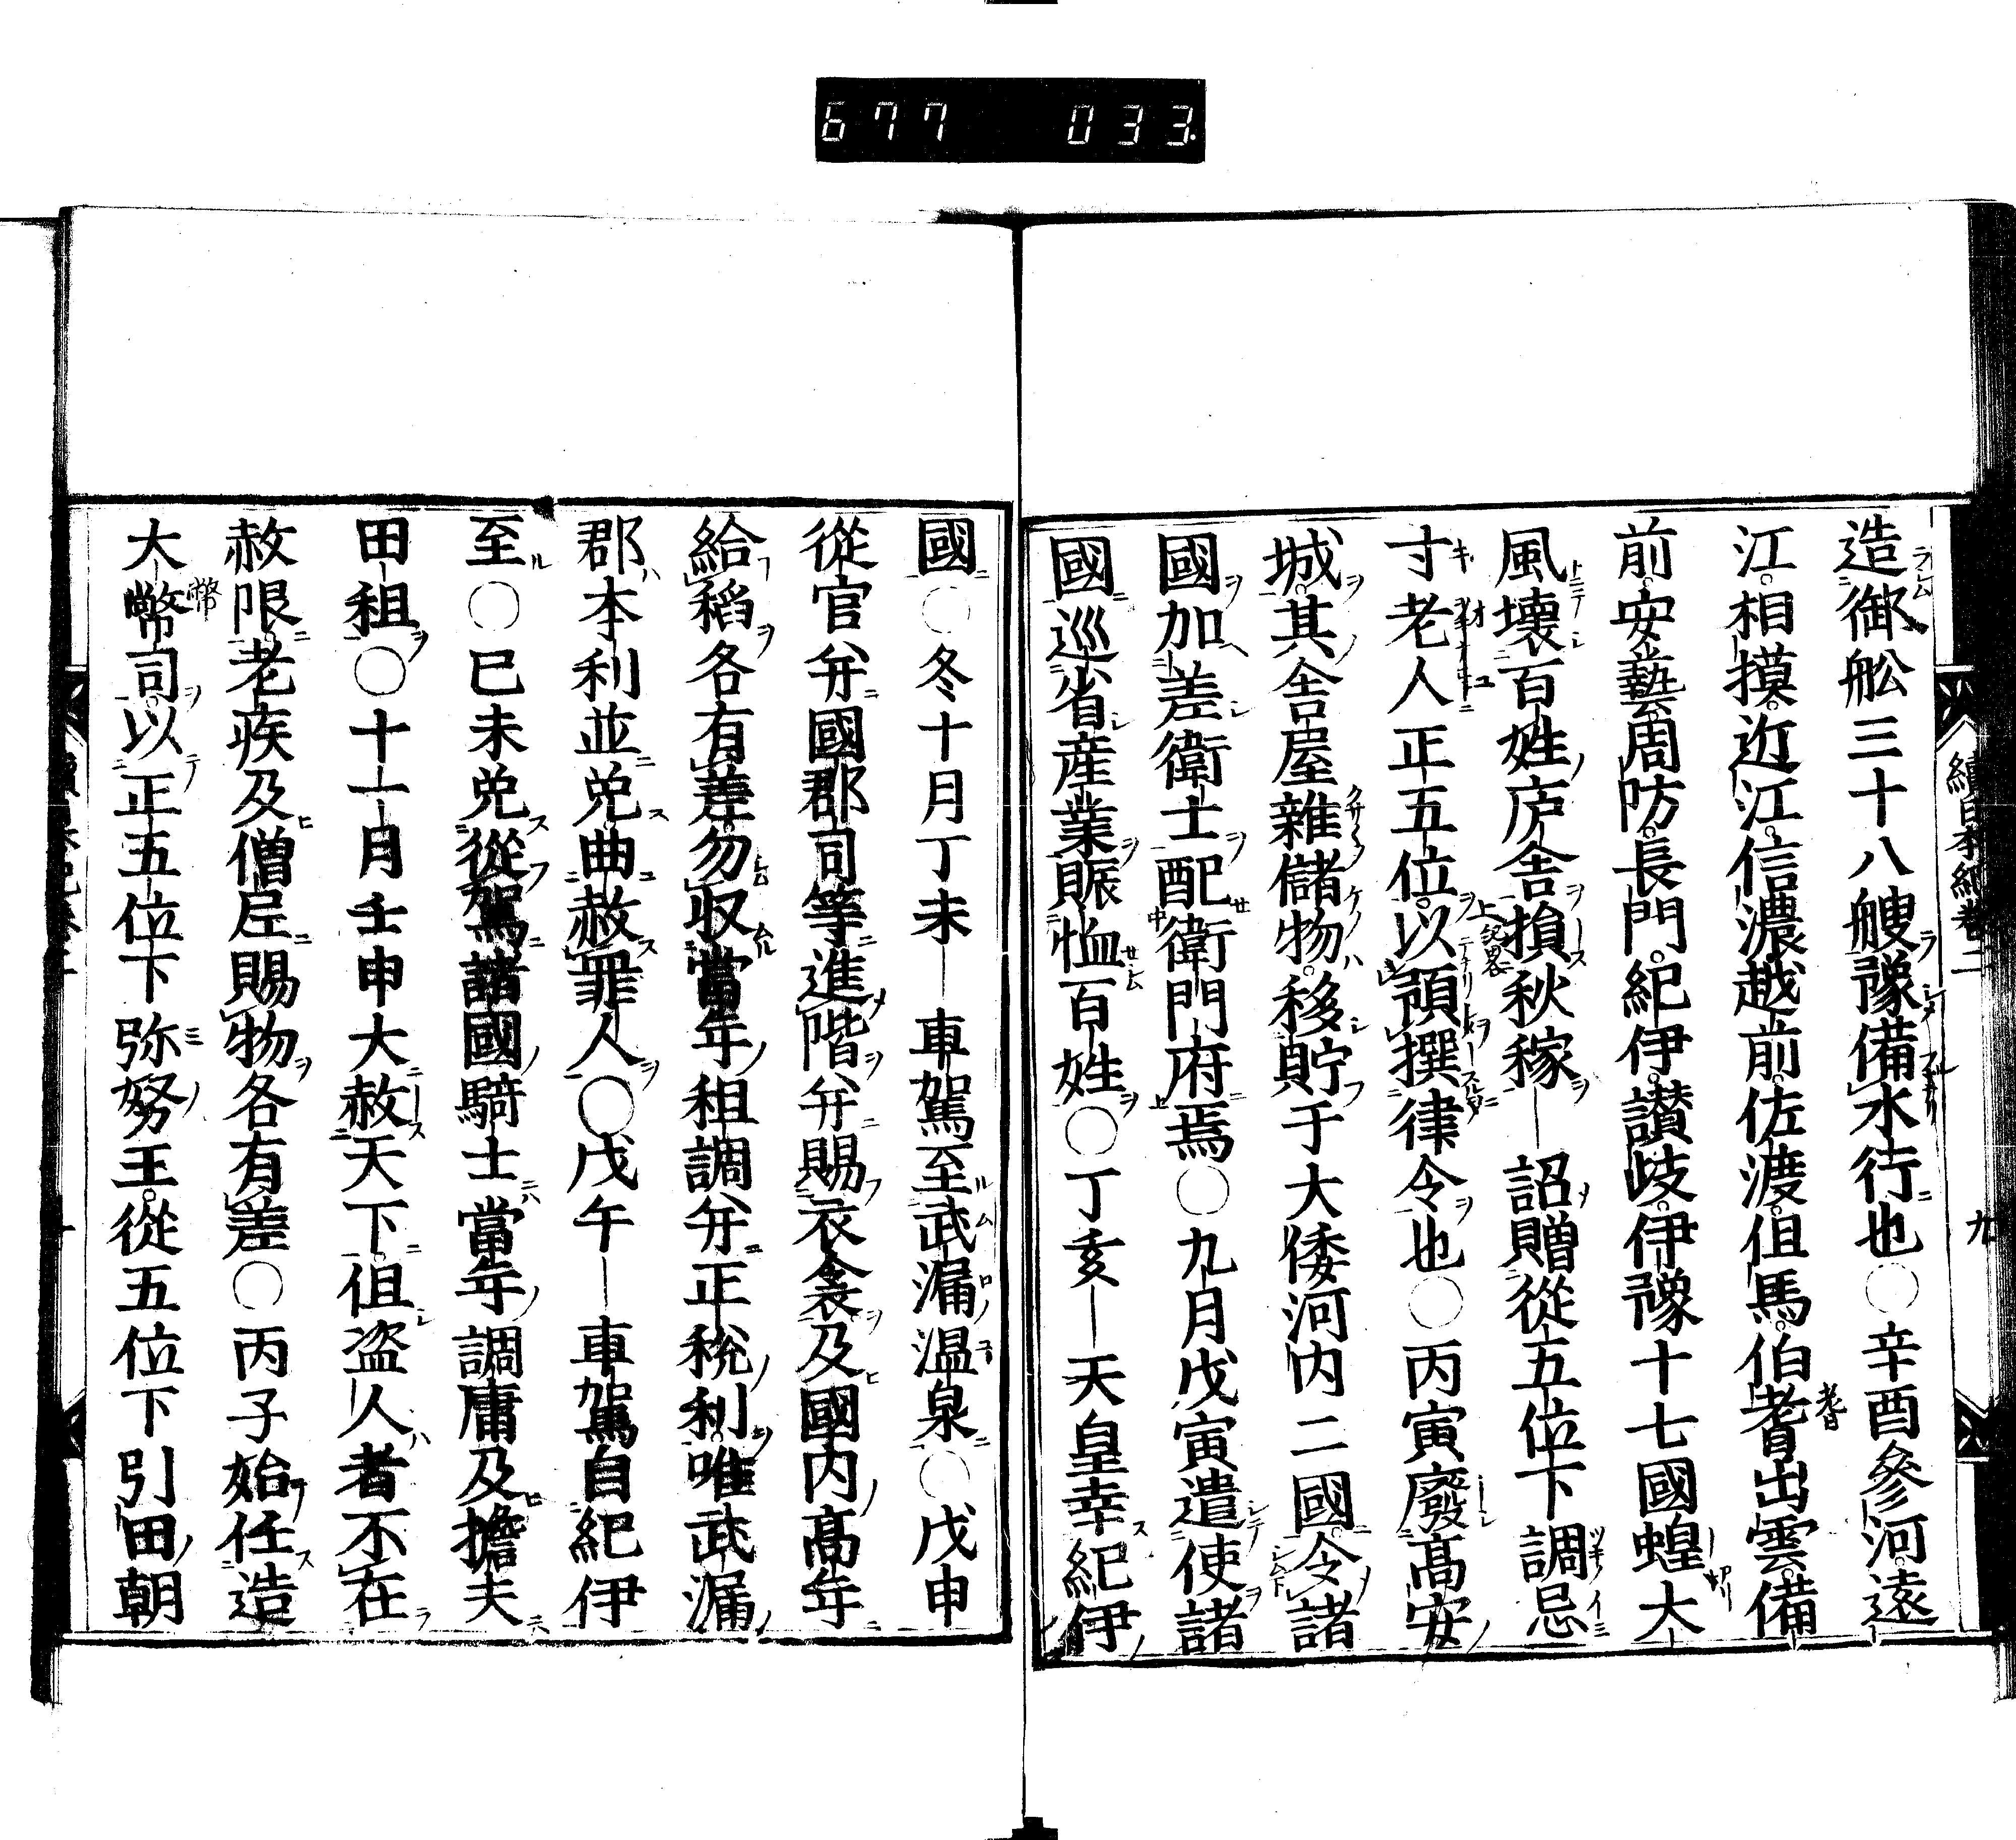 677 033.
續日本紀卷二
九
造御舩三十八艘豫備水行也○辛酉參河遠
江相摸近江信濃越前佐渡伹馬伯耆出雲備
前安藝周防長門紀伊讃岐伊豫十七國蝗大
風壊百姓庐舎損秋稼―詔贈從五位下調忌
寸老人正五位以預撰律令也○丙寅廢髙安
城其舎屋雜儲物移貯于大倭河内二國令諸
國加差衛士配衛門府焉○九月戊寅遣使諸
國巡省産業賑恤百姓○丁亥―天皇幸紀伊
國○冬十月丁未―車駕至武漏温泉○戊申
從官并國郡司等進階并賜衣衾及國内髙年
給稻各有差勿収當年租調并正税利唯武漏
郡本利並免曲赦罪人○戊午―車駕自紀伊
至○已未免從駕諸國騎士當年調庸及擔夫
田租○十一月壬申大赦天下伹盗人者不在
赦限老疾及僧尼賜物各有差○丙子始任造
大幣司以正五位下弥努王從五位下引田朝